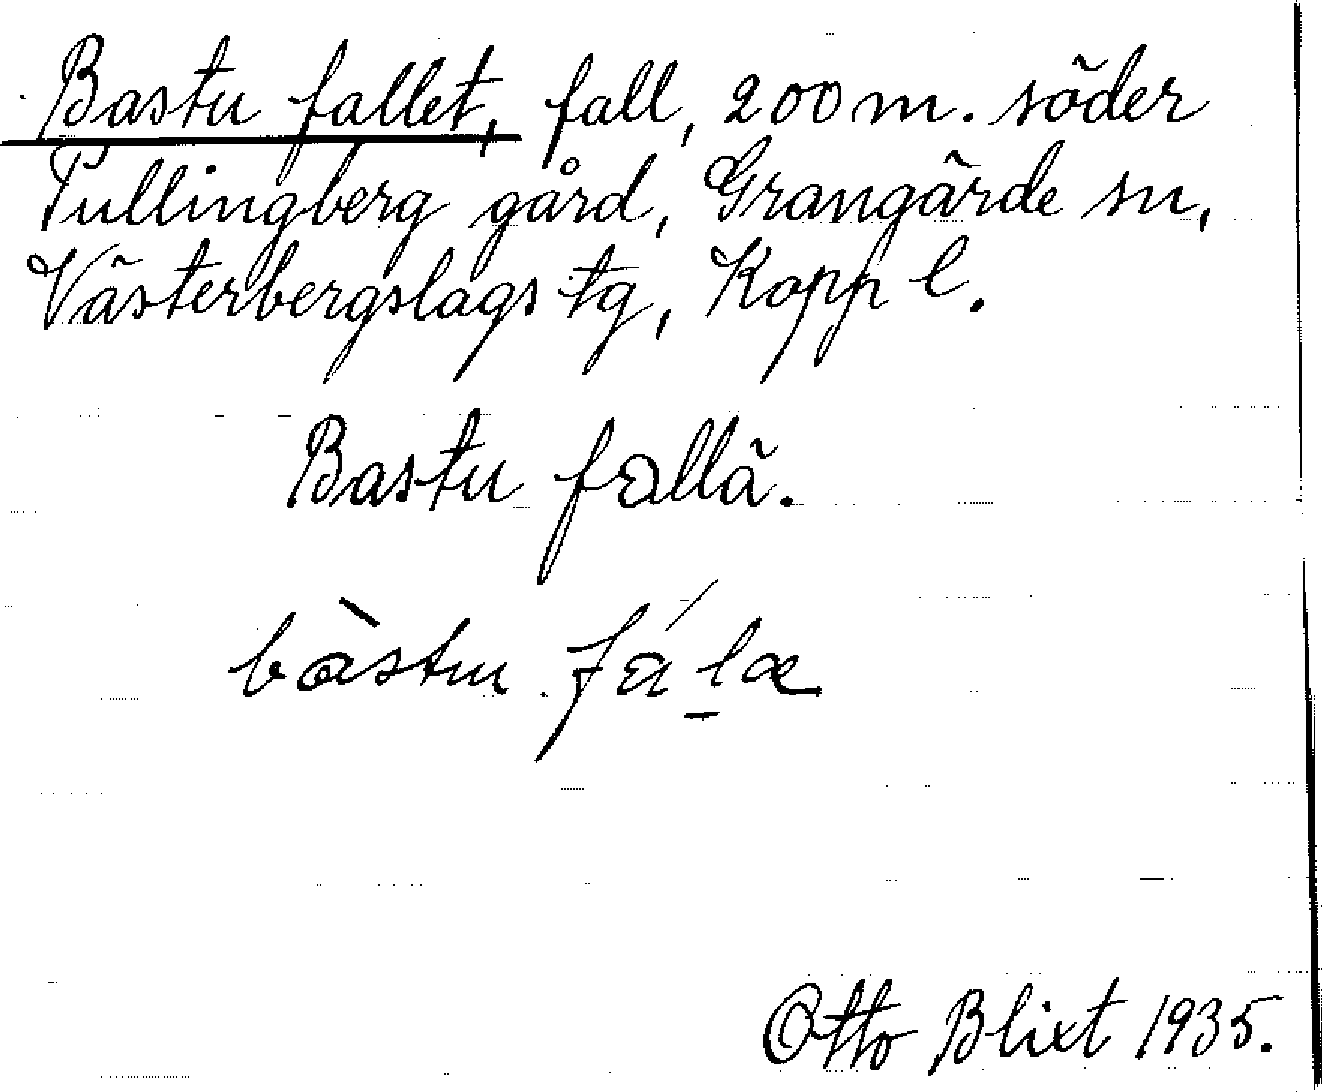 Bastu fallet, fall, 200 m. söder
Tullingberg gård, Grangärde sn,
Västerbergslags tg, Kopp l.
Bastu fallä.
bàstu fálæ
Otto Blixt 1935.